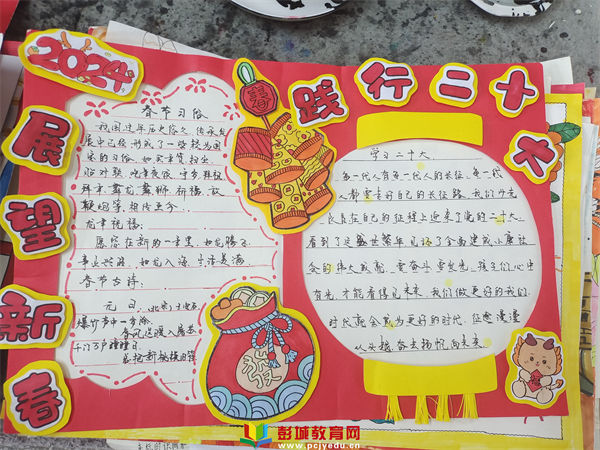 2024
展望新春
践行二十大
春
春节习俗
我国过年历史悠久,传承发
展中已经形成了一些较为固
定的习俗,如买年货,扫尘,
贴对联,吃年夜饭,守岁,拜年
拜年,舞龙舞狮,祈福,
龙年祝福:
愿您在新的一年里,如龙腾飞
事业兴旺,如龙入海,生活美满
春节古诗:
元日
爆竹声中一岁除
春风送暖入屠苏
千门万户曈曈日
总把新桃换旧符
学习二十大
每一代人有每一代人的长征,每一代
人都要走好自己的长征路。我们少先
队员在自己的征程上迎来了党的二十大
看到了这盛世繁年,见证了全面建成小康社
会的伟大成就,
有光,才能看得见未来,我们做更好的我们
时代就会成为更好的时代,征途漫漫
从头越,奋楫扬帆向未来。
福
彭城教育网
www.pcjyedu.cn